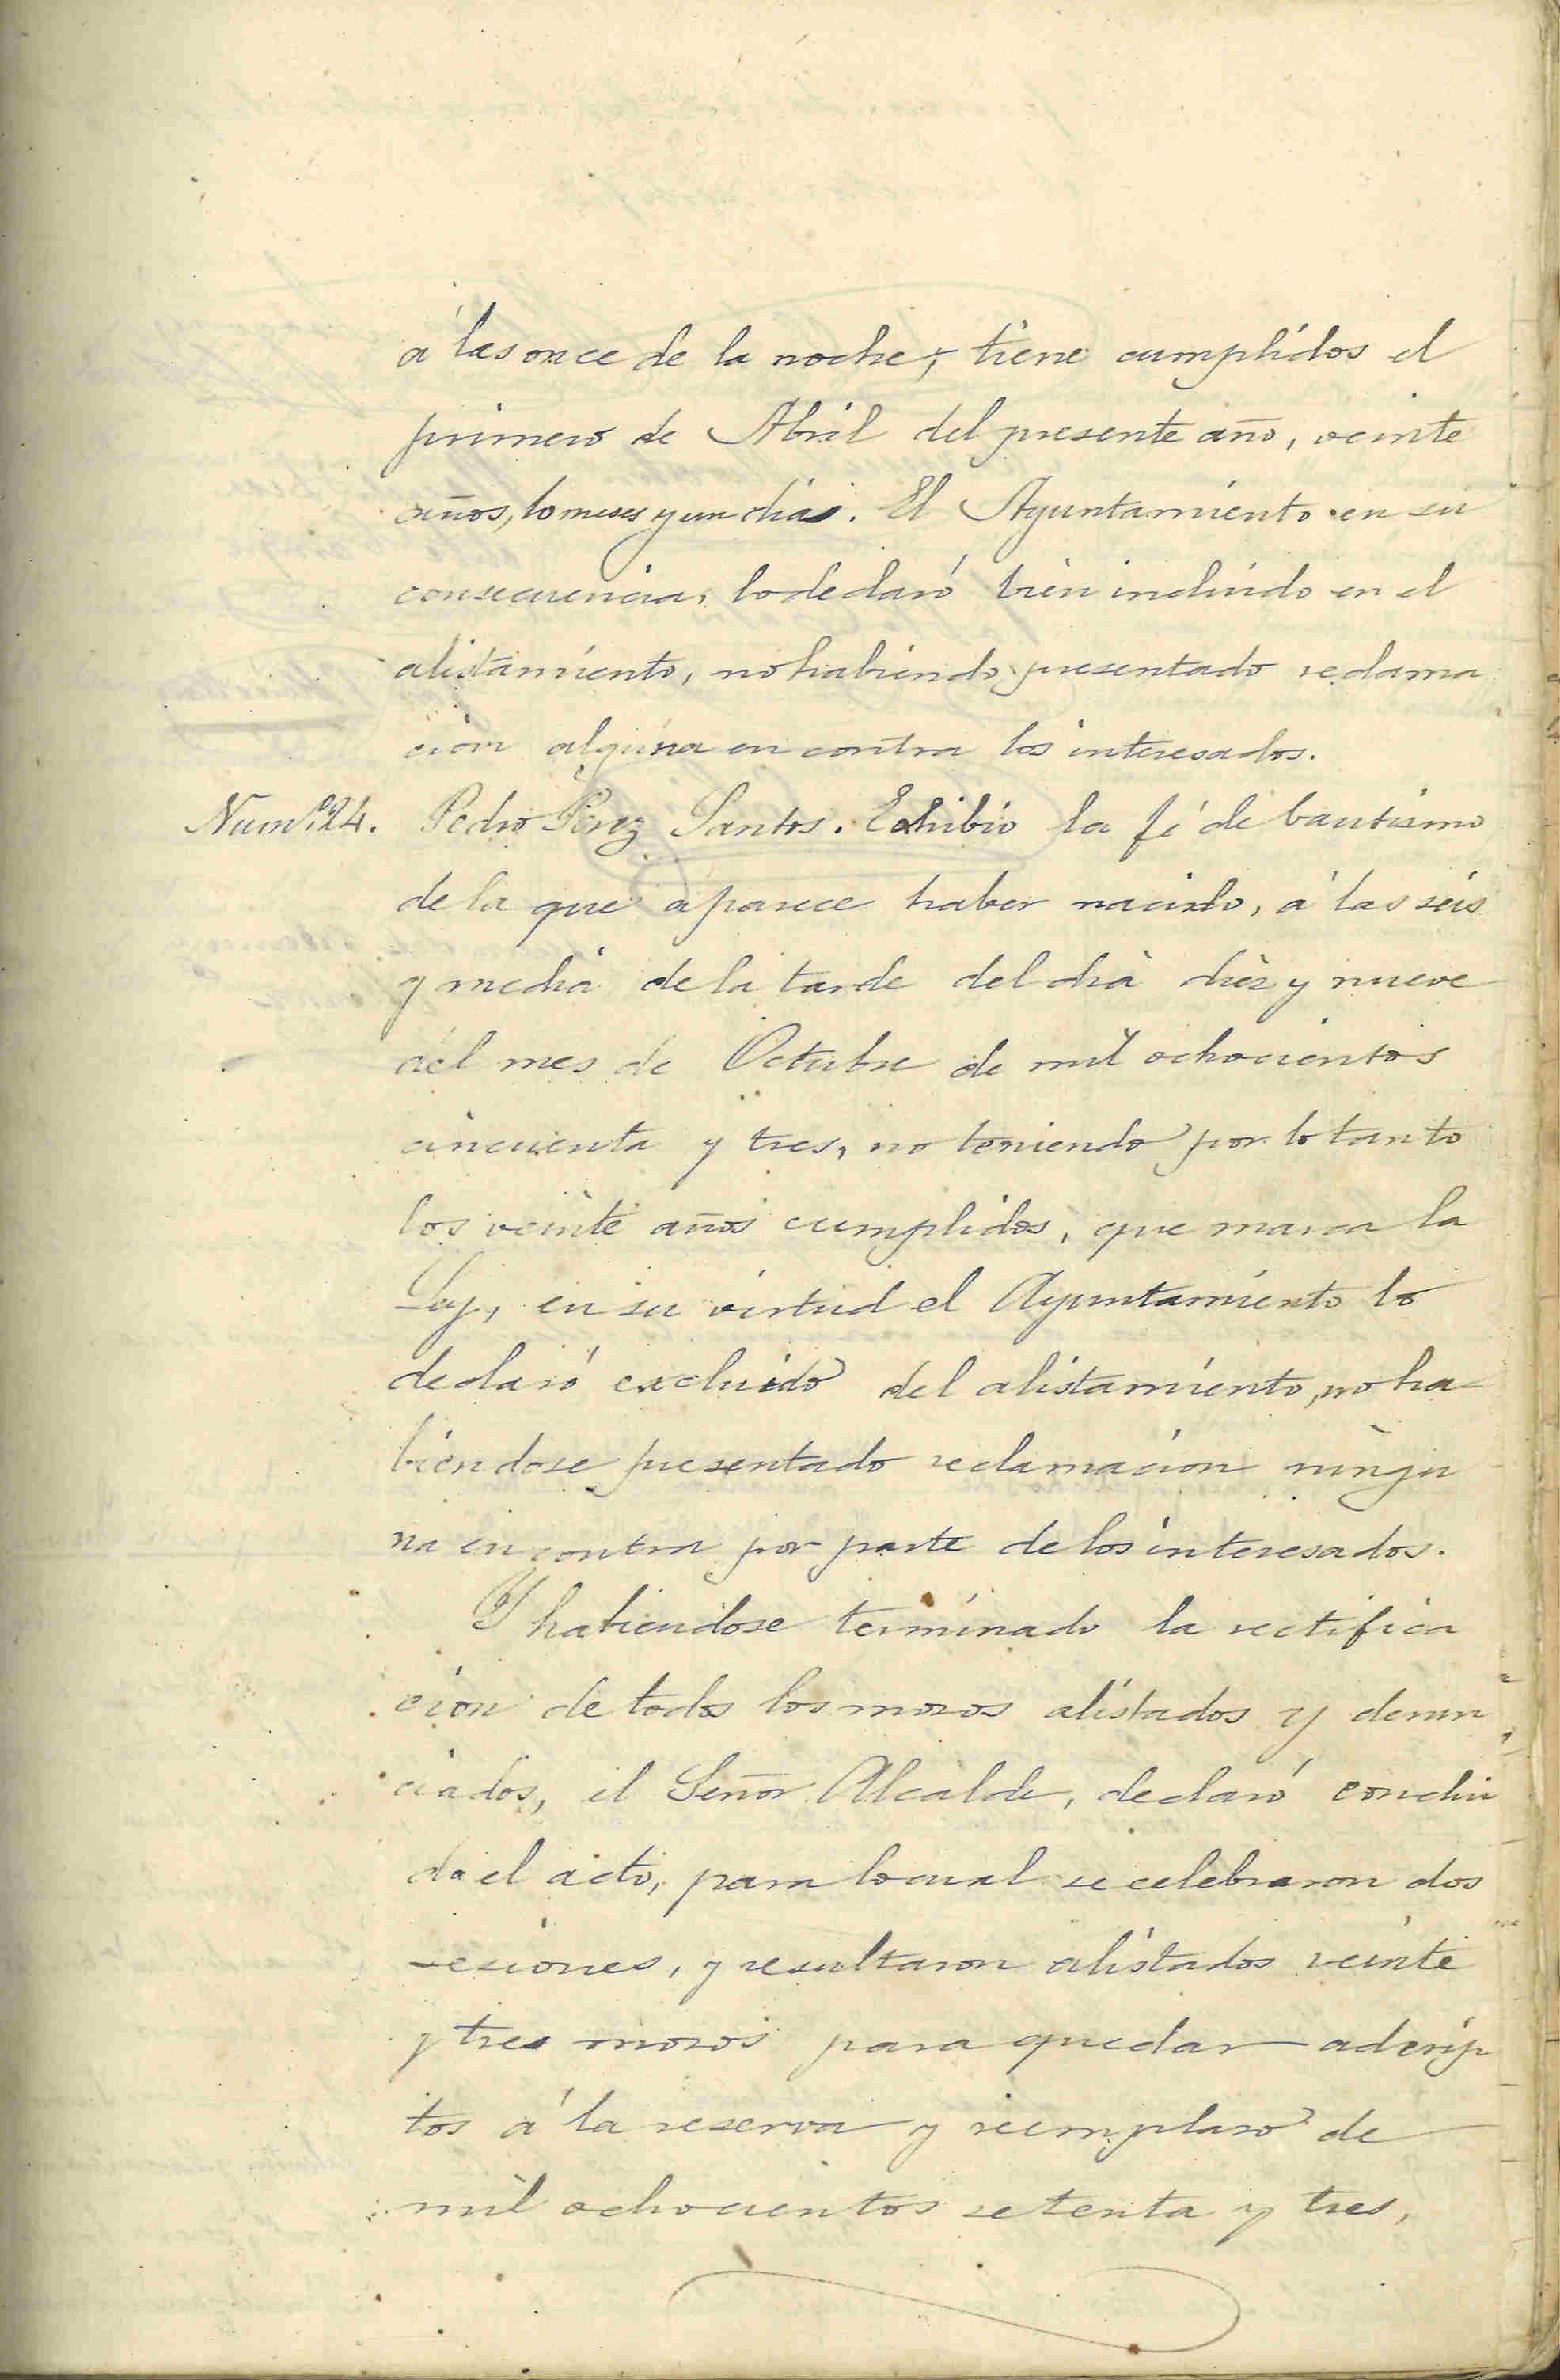 á las once de la noche, tiene cumplidos el
primero de Abril del presente año, veinte
años, 10 meses y un dias. El Ayuntamiento en su
consecuencia, lo declaró bien incluido en el
alistamiento, no habiendo presentado reclama
cion alguna en contra los interesados.
Num.º 24. Pedro Perez Santos. Exhibio la fé de bautismo
de la que aparece haber nacido, á las seis
y media de la tarde del dia diez y nueve
del mes de Octubre de mil ochocientos
cincuenta y tres, no teniendo por lo tanto
los veinte años cumplidos, que marca la
Ley, en su virtud el Ayuntamiento lo
declaró excluido del alistamiento, no ha-
biendose presentado reclamacion ningu
na en contra por parte de los interesados.
Y habiendose terminado la rectifica
cion de todos los mozos alistados y denun
ciados, el Señor Alcalde, declaró conclui
do el acto, para lo cual se celebraron dos
sesiones, y resultaron alistados veinte
y tres mozos para quedar adscrip
tos á la reserva y reemplazo de
mil ochocientos setenta y tres,